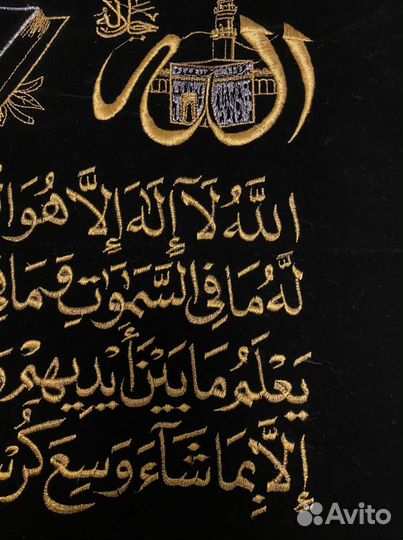 الله
اللَّهُ لَآ إِلَٰهَ إِلَّا هُوَ
لَّهُ مَا فِي السَّمَٰوَٰتِ وَمَا
يَعْلَمُ مَا بَيْنَ أَيْدِيهِمْ
إِلَّا بِمَا شَآءَ وَسِعَ
Avito